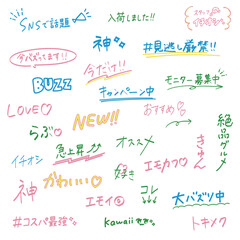 SNSで話題
入荷しました!!
スタッフ
イチオシ!
神
#見逃し厳禁!!
今バズってます!!
今だけ!!
BUZZ
キャンペーン中
モニター募集中
LOVE♡
おすすめ
NEW!!
らぶ♡
絶品グルメ
イチオシ
急上昇
オススメ
きゅん
神
かわいい♡
好き
エモカワ♡
コレ
エモイ
大バズリ中
#コスパ最強
kawaii
トキメク